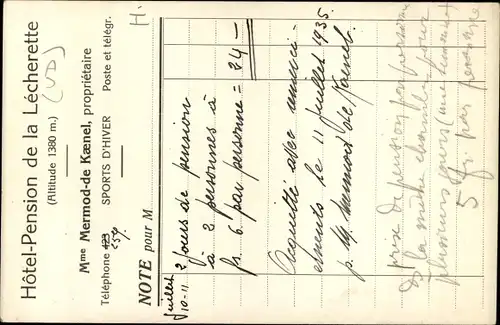 Hôtel-Pension de la Lécherette
(VD)
(Altitude 1380 m.)
Mme Mermod-de Kænel, propriétaire
Téléphone 423 SPORTS D'HIVER Poste et télégr.
259
H.
NOTE pour M
Juillet
10-11 2 jours de pension
à 2 personnes à
fr. 6. par personne = 24 —
Acquittée avec remerci-
ements le 11 juillet 1935.
p. My. Mermod de Kænel.
prise de pension par personne
à la même chambre pour
plusieurs jours (une semaine)
5 fr. par personne